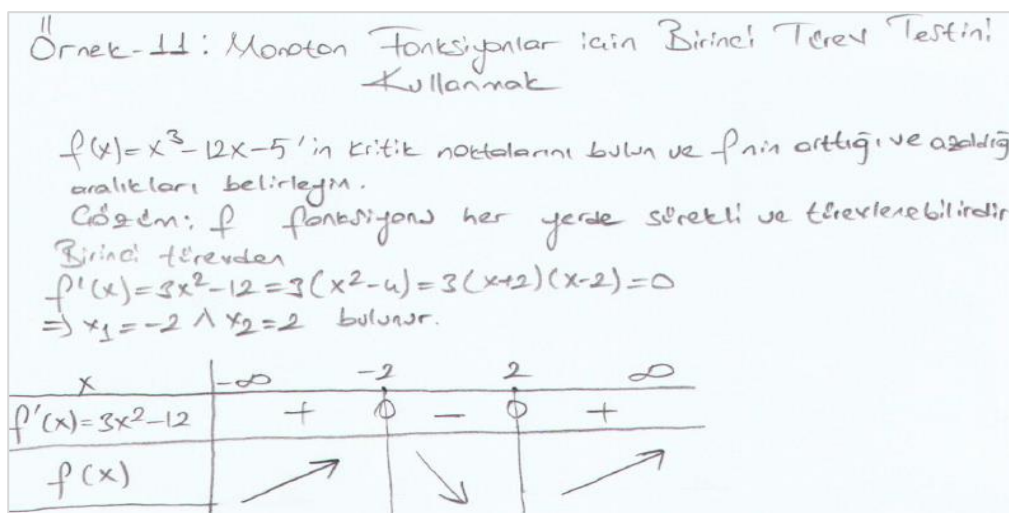 Örnek-11: Monoton Fonksiyonlar için Birinci Türev Testini
Kullanmak
f(x)=x³-12x-5'in kritik noktalarını bulun ve f nin arttığı ve azaldığ
aralıkları belirleyin.
Çözüm: f fonksiyonu her yerde sürekli ve türevlenebilirdir
Birinci türevden
f'(x)=3x²-12=3(x²-4)=3(x+2)(x-2)=0
⇒ x₁=-2 ∧ x₂=2 bulunur.
x -∞ -2 2 ∞
f'(x)=3x²-12 + 0 - 0 +
f(x) ↗ ↘ ↗